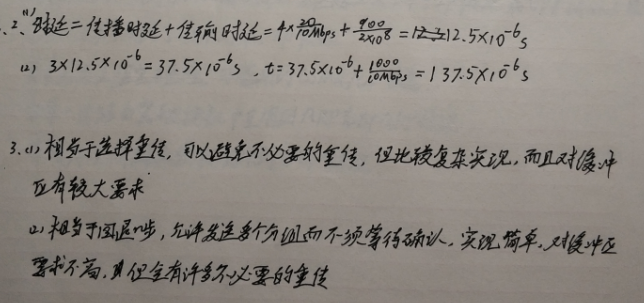 2、(1) 时延=传播时延+传输时延=4×20/10Mbps+900/2×10⁸=12.5×10⁻⁶s
(2) 3×12.5×10⁻⁶=37.5×10⁻⁶s，t=37.5×10⁻⁶+1000/10Mbps=137.5×10⁻⁶s
3.(1) 相当于选择重传，可以避免不必要的重传，但比较复杂实现，而且对缓冲
区有较大要求
(2) 相当于回退n步，允许发送多个分组而不须等待确认，实现简单，对缓冲区
要求不高，但会有许多不必要的重传